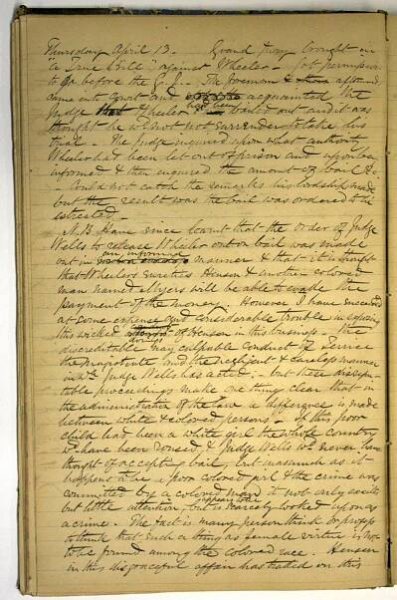 Thursday April 13. Grand Jury brought in
"a True Bill" against Wheeler - Got permission
to go before the G.J. - The foreman afterwd
came into Court and acquainted the
Judge Wheeler had been bailed out and it was
thought he wd not surrender to take his
trial - The Judge inquired upon what authority
Wheeler had been let out of prison and upon being
informed & then enquired the amount of bail &c.
- Could not catch the remarks his lordship made
but the result was the bail was ordered to be
estreated.
N.B. Have since learnt that the order of Judge
Wells to release Wheeler out on bail was made
out in an informal manner & that it is thought
that Wheeler's sureties Henson & another colored
man named Myers will be able to evade the
payment of the money. However I have succeeded
at some expense and considerable trouble in exposing
this wicked doings of Henson in this business - the
discreditable nay culpable conduct of
the Magistrate and the negligent & careless manner
in wh. Judge Wells has acted - but these disrepu-
table proceedings make one thing clear that in
the administration of the law a difference is made
between white & colored persons - If this poor
child had been a white girl the whole country
wd have been roused & Judge Wells wd never have
thought of accepting bail, but inasmuch as it
happens to be a poor colored girl & the crime was
committed by a colored man it not only excites
but little attention, but appears to be scarcely looked upon as
a crime. The fact is many persons think or profess
to think that such a thing as female virtue is not
to be found among the colored race. Henson
in this disgraceful affair has traded on this